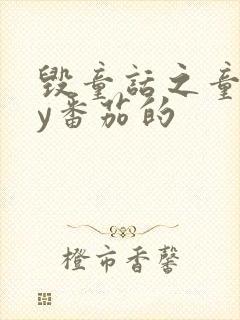 毁童话之童
y番茄的
橙市香馨